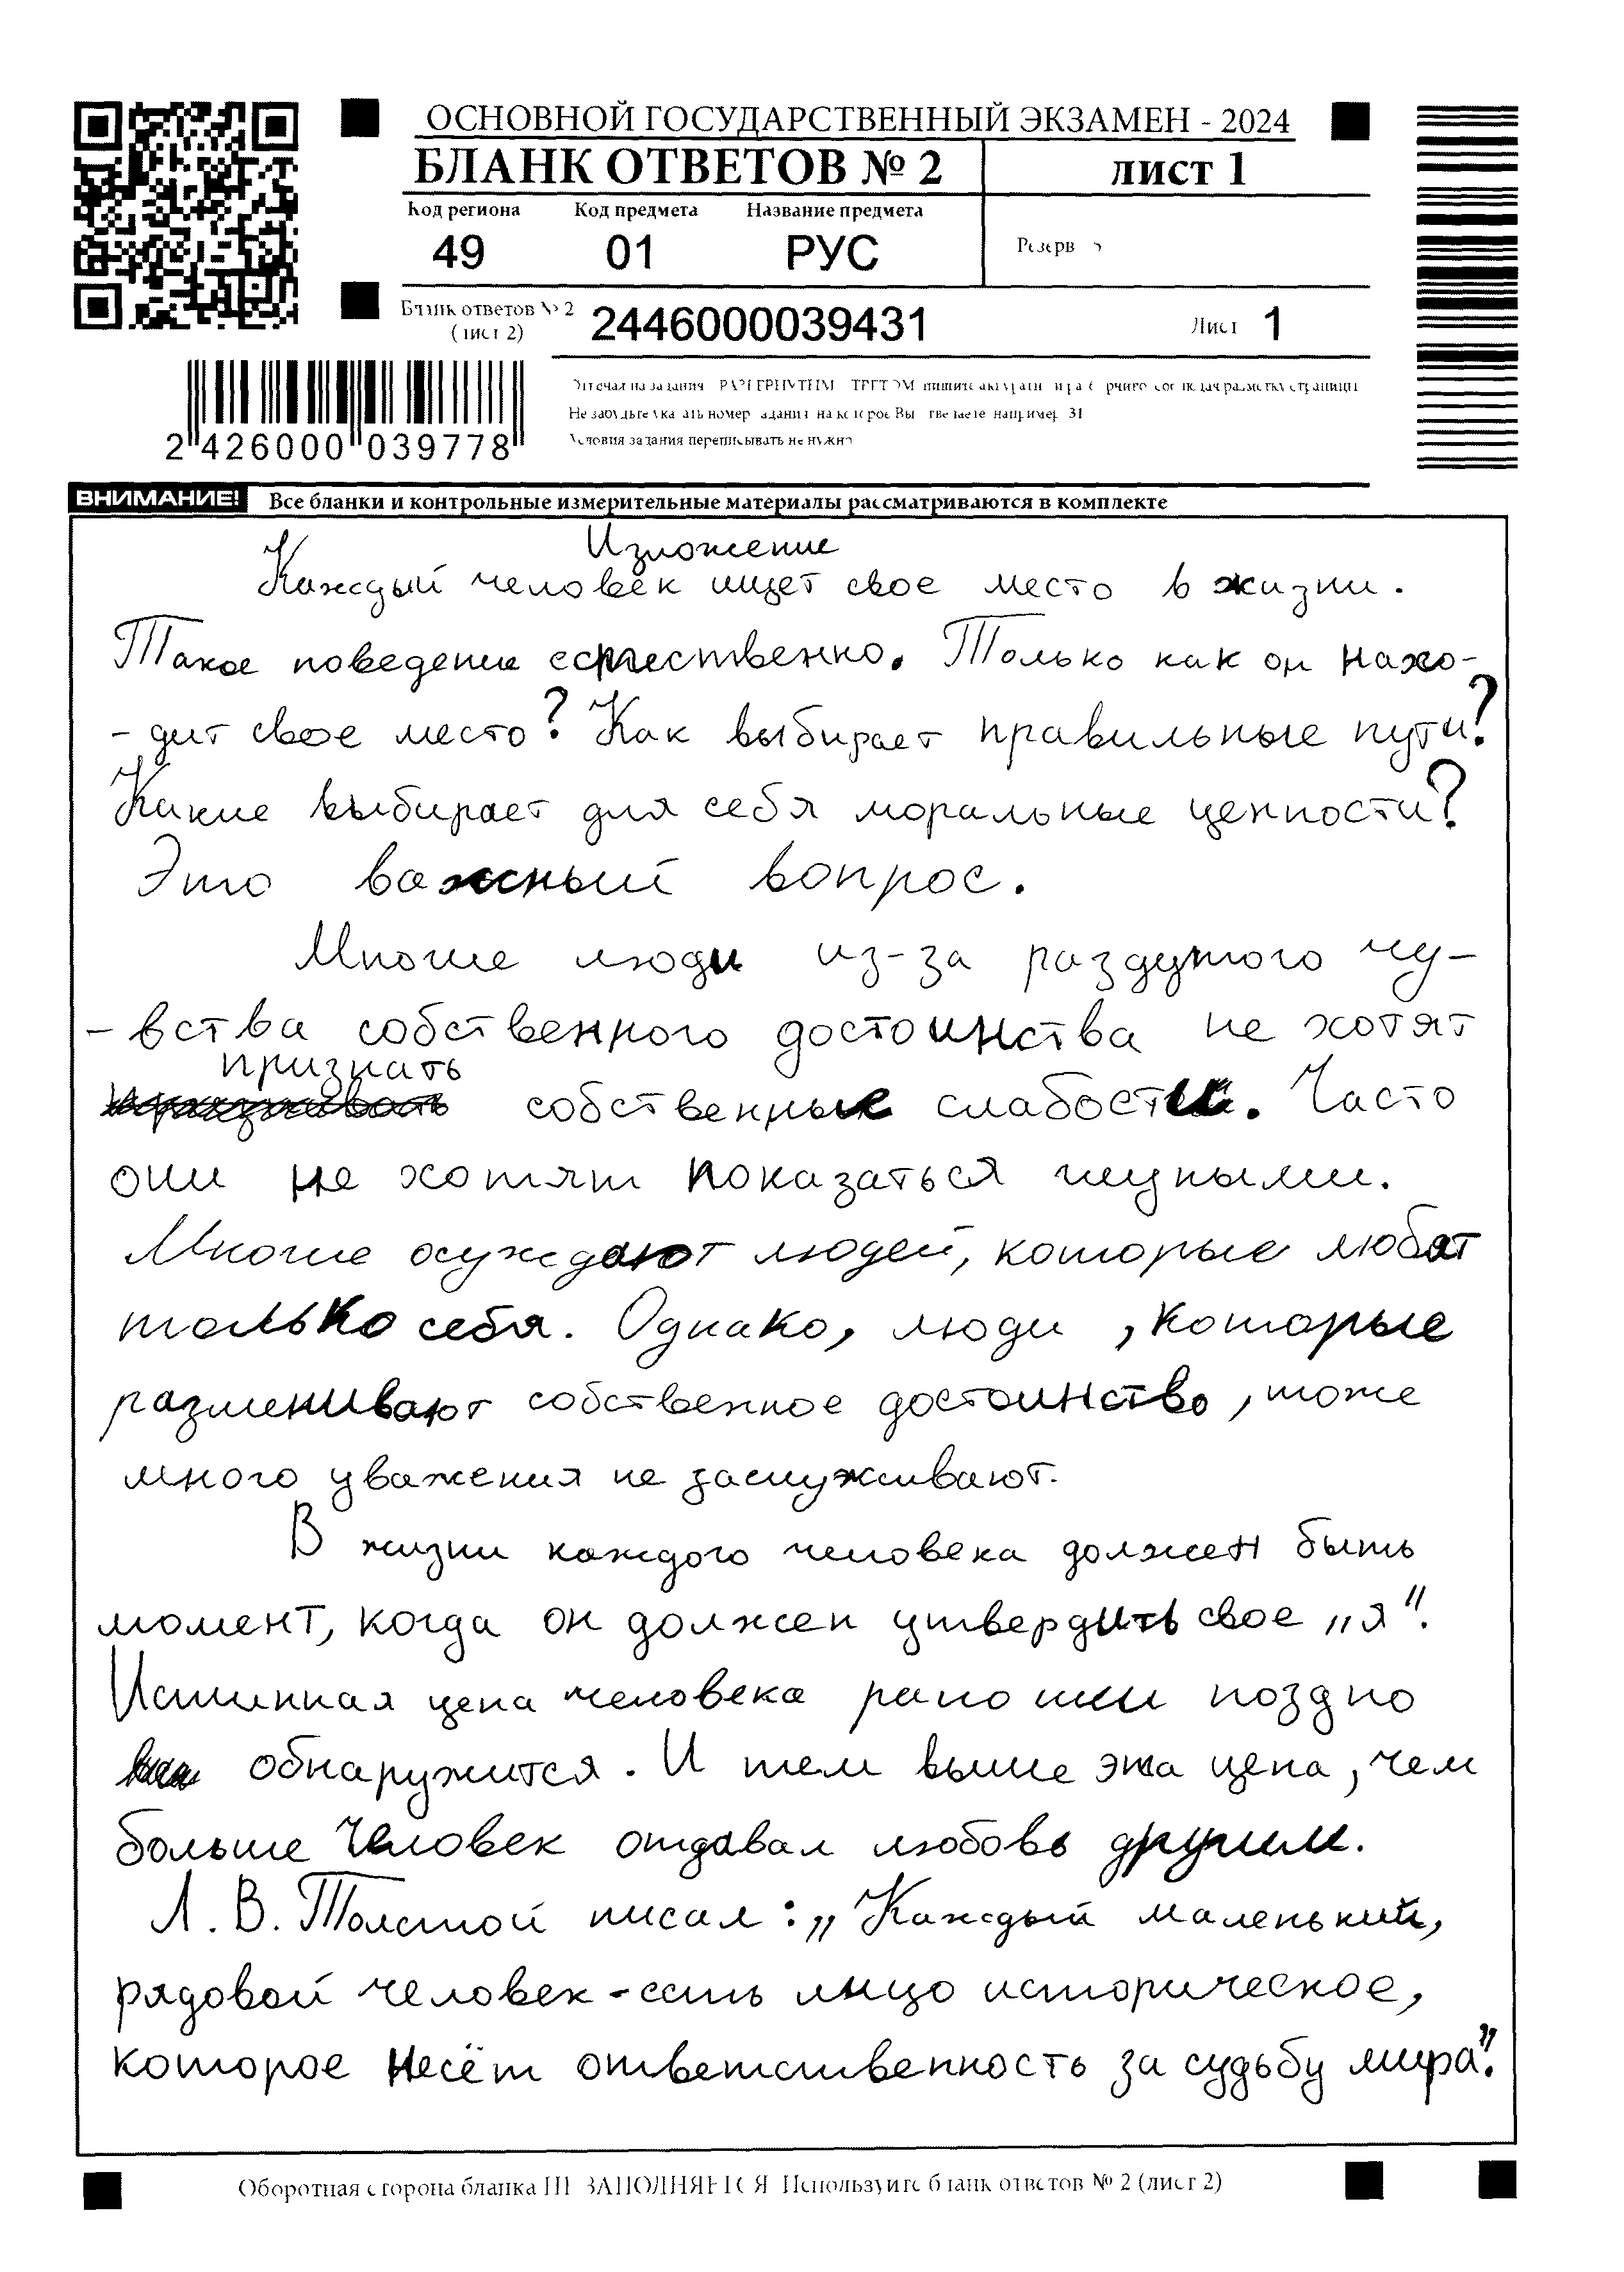 ОСНОВНОЙ ГОСУДАРСТВЕННЫЙ ЭКЗАМЕН - 2024
БЛАНК ОТВЕТОВ № 2
ЛИСТ 1
Код региона Код предмета Название предмета
49 01 РУС
Резерв
Бланк ответов № 2
(лист 2)
2446000039431
Лист 1
2 426000 039778
Не забудьте указать номер задания на которое Вы отвечаете например 31
Условия задания переписывать не нужно
ВНИМАНИЕ! Все бланки и контрольные измерительные материалы рассматриваются в комплекте
Изложение
Каждый человек ищет свое место в жизни.
Такое поведение естественно. Только как он нахо-
- дит свое место? Как выбирает правильные пути?
Какие выбирает для себя моральные ценности?
Это важный вопрос.
Многие люди из-за раздутого чу-
- вства собственного достоинства не хотят
признать
собственные слабости. Часто
они не хотят показаться глупыми.
Многие осуждают людей, которые любят
только себя. Однако, люди , которые
разменивают собственное достоинство, тоже
много уважения не заслуживают.
В жизни каждого человека должен быть
момент, когда он должен утвердить свое „я“.
Истинная цена человека рано или поздно
обнаружится. И тем выше эта цена, чем
больше человек отдавал любовь другим.
Л. В. Толстой писал: „Каждый маленький,
рядовой человек - есть лицо историческое,
которое несёт ответственность за судьбу мира”.
Оборотная сторона бланка НЕ ЗАПОЛНЯЕТСЯ Используйте бланк ответов № 2 (лист 2)